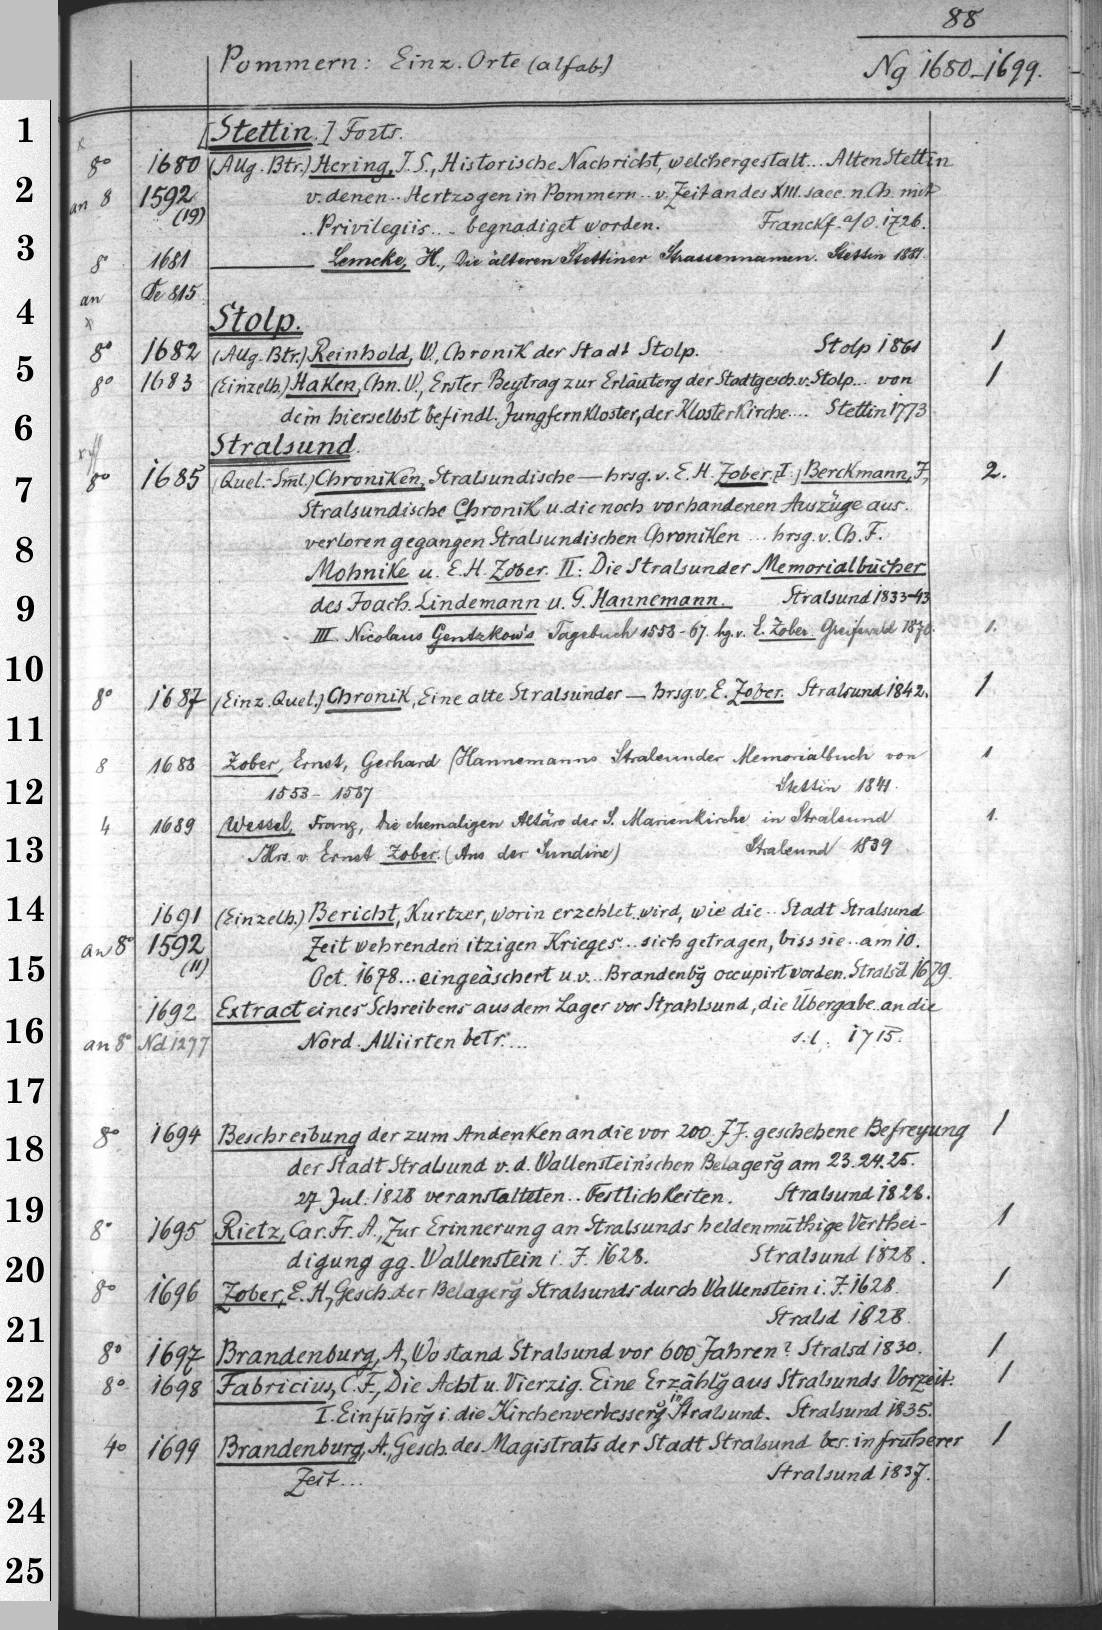 88
Pommern: Einz. Orte (alfab.)
Ng 1680-1699.
1
[Stettin.] Forts.
8° 1680 (Allg. Btr.) Hering, J. S., Historische Nachricht, welchergestalt... Alten Stettin
2
an 8 1592 (19) v. denen.. Hertzogen in Pommern.. v. Zeit an des XIII. saec. n. Ch. mit
.. Privilegiis... begnadiget worden. Franckf. a/O. 1726.
3
8° 1681 ——— Lemcke, H., Die älteren Stettiner Strassennamen. Stettin 1881.
an De 815
4
Stolp.
8° 1682 (Allg. Btr.) Reinhold, W., Chronik der Stadt Stolp. Stolp 1861 1
5
8° 1683 (Einzelh.) Haken, Chn. W., Erster Beytrag zur Erläuterg der Stadtgesch. v. Stolp... von 1
dem hierselbst befindl. Jungfernkloster, der Klosterkirche.... Stettin 1773
6
Stralsund.
7
8° 1685 (Quel.-Sml.) Chroniken, Stralsundische — hrsg. v. E. H. Zober. [I.] Berckmann, J., 2.
Stralsundische Chronik u. die noch vorhandenen Auszüge aus..
8
verloren gegangen Stralsundischen Chroniken ... hrsg. v. Ch. F.
Mohnike u. E. H. Zober. II: Die Stralsunder Memorialbücher
9
des Joach. Lindemann u. G. Hannemann. Stralsund 1833-43
III Nicolaus Gentzkow's Tagebuch 1558-67. hg. v. E. Zober. Greifswald 1870. 1.
10
8° 1687 (Einz. Quel.) Chronik, Eine alte Stralsunder — hrsg. v. E. Zober. Stralsund 1842. 1
11
8 1688 Zober, Ernst, Gerhard Hannemanns Stralsunder Memorialbuch von 1
12
1553-1587 Stettin 1841.
4 1689 Wessel, Franz, Die ehemaligen Altäre der S. Marienkirche in Stralsund 1.
13
Hrs. v. Ernst Zober. (Aus der Sundine) Stralsund 1839
14
1691 (Einzelh.) Bericht, Kurtzer, worin erzehlet wird, wie die.. Stadt Stralsund
an 8° 1592 (11) Zeit wehrenden itzigen Krieges... sich getragen, biss sie.. am 10.
15
Oct. 1678... eingeäschert u. v... Brandenbg occupirt worden. Stralsd 1679.
1692 Extract eines Schreibens aus dem Lager vor Strahlsund, die Übergabe.. an die
16
an 8° Nd 1277 Nord. Alliirten betr.... s. l. 1715.
17
8° 1694 Beschreibung der zum Andenken an die vor 200. JJ. geschehene Befreyung 1
18
der Stadt Stralsund v. d. Wallenstein'schen Belagerg am 23. 24. 25.
27 Jul. 1828 veranstalteten.. Festlichkeiten. Stralsund 1828.
19
8° 1695 Rietz, Car. Fr. A., Zur Erinnerung an Stralsunds heldenmüthige Verthei- 1
digung gg. Wallenstein i. J. 1628. Stralsund 1828.
20
8° 1696 Zober, E. H., Gesch. der Belagerg Stralsunds durch Wallenstein i. J. 1628. 1
21
Stralsd 1828.
8° 1697 Brandenburg, A., Wo stand Stralsund vor 600 Jahren? Stralsd 1830. 1
22
8° 1698 Fabricius, C. F., Die Acht u. Vierzig. Eine Erzählg aus Stralsunds Vorzeit: 1
I. Einführg i. die Kirchenverbesserg in Stralsund. Stralsund 1835.
23
4° 1699 Brandenburg, A., Gesch. des Magistrats der Stadt Stralsund bes. in früherer 1
Zeit... Stralsund 1837.
24
25